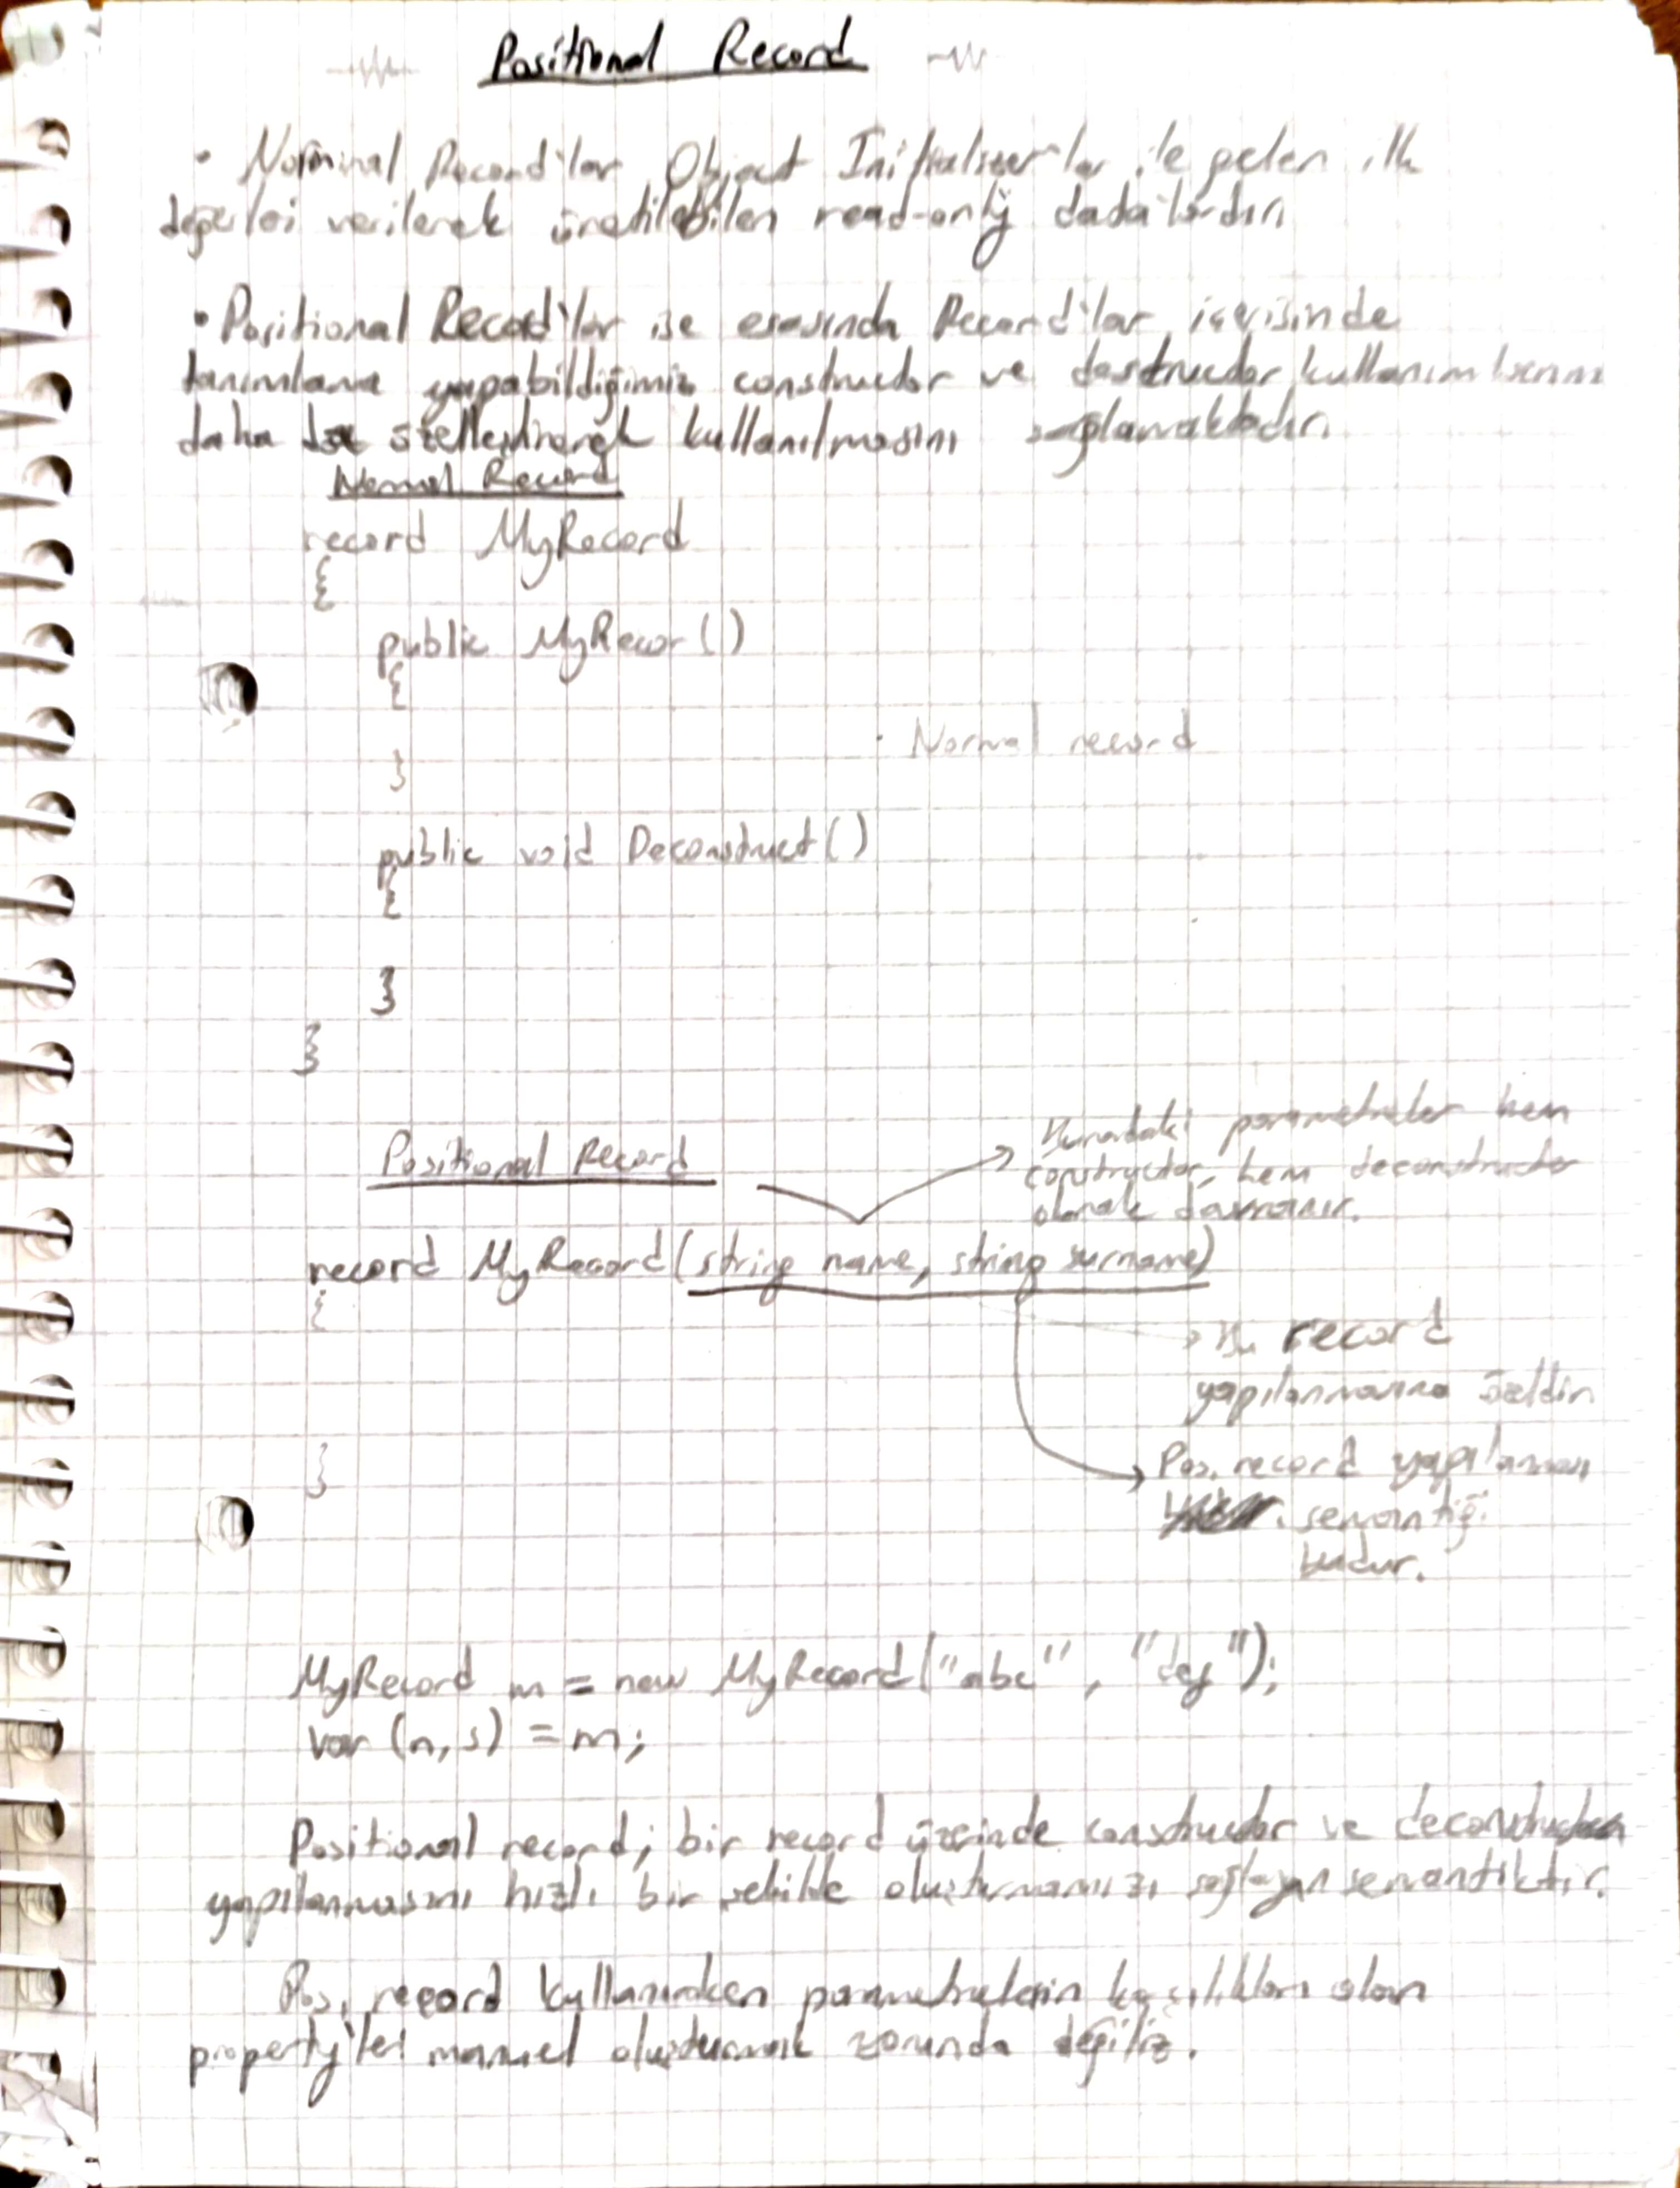 Positional Record
• Nominal Record'lar Object Initializer'lar ile gelen ilk
değerleri verilerek üretilebilen read-only datalardır.
• Positional Record'lar ise esasında Record'lar içerisinde
tanımlama yapabildiğimiz constructor ve destructor kullanımlarını
daha özelleştirerek kullanılmasını sağlamaktadır.
Normal Record
record MyRecord
{
public MyRecor()
{
• Normal record
}
public void Deconstruct()
{
}
}
Positional Record
Buradaki parametreler hem
constructor, hem deconstructor
olarak davranır.
record MyRecord(string name, string surname)
{
→ Bu record
yapılanmasına özeldir.
}
Pos. record yapılanması
semantiği
budur.
MyRecord m = new MyRecord("abc", "def");
var (n,s) = m;
Positional record; bir record üzerinde constructor ve deconstructor
yapılanmasını hızlı bir şekilde oluşturmamızı sağlayan semantiktir.
Pos. record kullanırken parametrelerin karşılıkları olan
property'leri manuel oluşturmak zorunda değiliz.